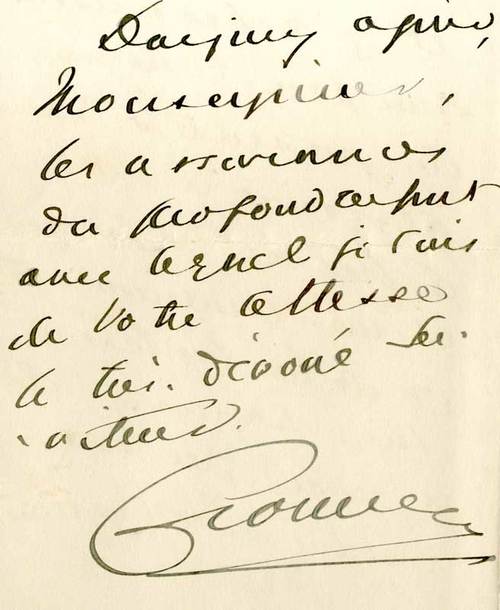 Daignez agréer,
Monseigneur,
les assurances
du profond respect
avec lequel je suis
de Votre Altesse
le très dévoué Ser-
viteur.